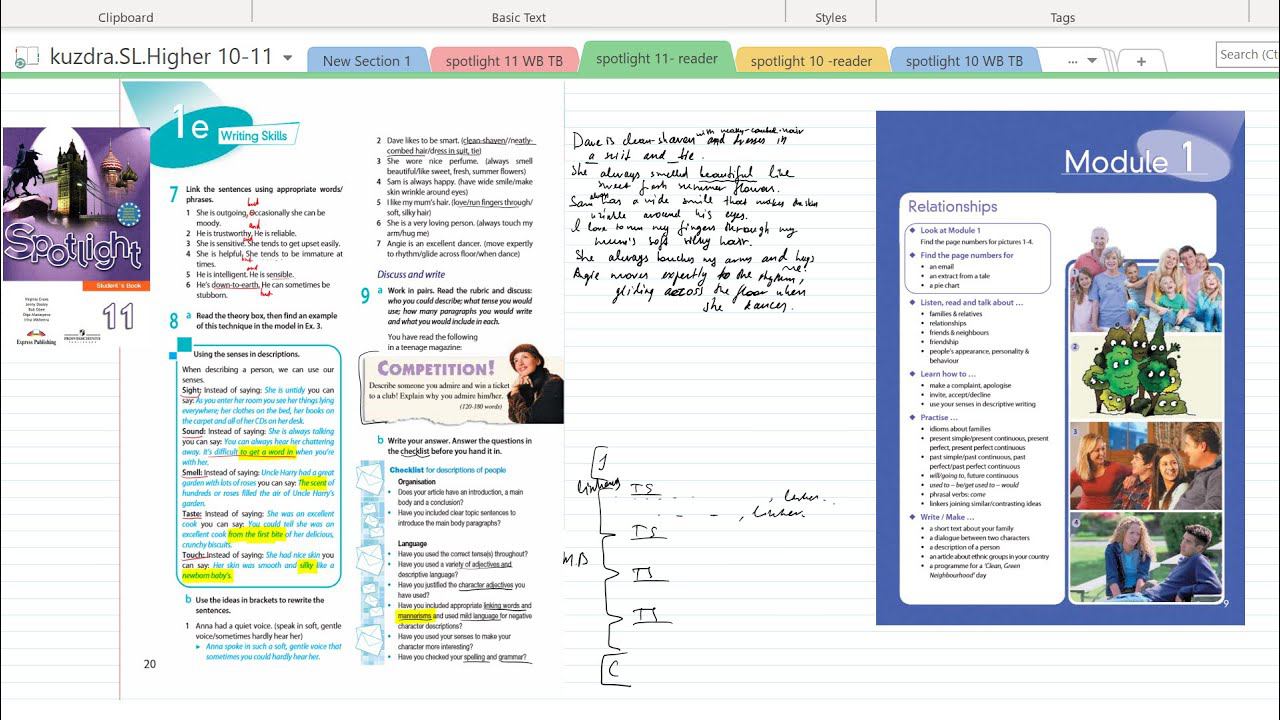 Clipboard
Basic Text
Styles
Tags
kuzdra.SL.Higher 10-11
New Section 1
spotlight 11 WB TB
spotlight 11- reader
spotlight 10 -reader
spotlight 10 WB TB
...
+
Search (Ct
Spotlight
Student's Book
11
Express Publishing
1e
Writing Skills
7 Link the sentences using appropriate words/
phrases.
but
1 She is outgoing. Occasionally she can be
moody.
and
2 He is trustworthy. He is reliable.
3 She is sensitive. She tends to get upset easily.
but
4 She is helpful. She tends to be immature at
times.
and
5 He is intelligent. He is sensible.
6 He's down-to-earth. He can sometimes be
stubborn.
but
8 a Read the theory box, then find an example
of this technique in the model in Ex. 3.
Using the senses in descriptions.
When describing a person, we can use our
senses.
Sight: Instead of saying: She is untidy you can
say: As you enter her room you see her things lying
everywhere; her clothes on the bed, her books on
the carpet and all of her CDs on her desk.
Sound: Instead of saying: She is always talking
you can say: You can always hear her chattering
away. It's difficult to get a word in when you're
with her.
Smell: Instead of saying: Uncle Harry had a great
garden with lots of roses you can say: The scent of
hundreds or roses filled the air of Uncle Harry's
garden.
Taste: Instead of saying: She was an excellent
cook you can say: You could tell she was an
excellent cook from the first bite of her delicious,
crunchy biscuits.
Touch: Instead of saying: She had nice skin you
can say: Her skin was smooth and silky like a
newborn baby's.
b Use the ideas in brackets to rewrite the
sentences.
1 Anna had a quiet voice. (speak in soft, gentle
voice/sometimes hardly hear her)
Anna spoke in such a soft, gentle voice that
sometimes you could hardly hear her.
20
2 Dave likes to be smart. (clean-shaven//neatly-
combed hair/dress in suit, tie)
3 She wore nice perfume. (always smell
beautiful/like sweet, fresh, summer flowers)
4 Sam is always happy. (have wide smile/make
skin wrinkle around eyes)
5 I like my mum's hair. (love/run fingers through/
soft, silky hair)
6 She is a very loving person. (always touch my
arm/hug me)
7 Angie is an excellent dancer. (move expertly
to rhythm/glide across floor/when dance)
Discuss and write
9 a Work in pairs. Read the rubric and discuss:
who you could describe; what tense you would
use; how many paragraphs you would write
and what you would include in each.
You have read the following
in a teenage magazine:
COMPETITION!
Describe someone you admire and win a ticket
to a club! Explain why you admire him/her.
(120-180 words)
b Write your answer. Answer the questions in
the checklist before you hand it in.
Checklist for descriptions of people
Organisation
• Does your article have an introduction, a main
body and a conclusion?
• Have you included clear topic sentences to
introduce the main body paragraphs?
Language
• Have you used the correct tense(s) throughout?
• Have you used a variety of adjectives and
descriptive language?
• Have you justified the character adjectives you
have used?
• Have you included appropriate linking words and
mannerisms and used mild language for negative
character descriptions?
• Have you used your senses to make your
character more interesting?
• Have you checked your spelling and grammar?
Dave is clean-shaven with neatly-combed hair
and dresses in
a suit and tie.
She always smelled beautiful like
sweet fresh summer flowers.
Sam always has a wide smile that makes the skin
wrinkle around his eyes.
I love to run my fingers through my
mum's soft silky hair.
She always touching my arms and hugs
me.
Angie moves expertly to the rhythm,
gliding across the floor when
she dances.
M.B
C
Module 1
Relationships
Look at Module 1
Find the page numbers for pictures 1-4.
Find the page numbers for
• an email
• an extract from a tale
• a pie chart
Listen, read and talk about ...
• families & relatives
• relationships
• friends & neighbours
• friendship
• people's appearance, personality &
behaviour
Learn how to ...
• make a complaint, apologise
• invite, accept/decline
• use your senses in descriptive writing
Practise ...
• idioms about families
• present simple/present continuous, present
perfect, present perfect continuous
• past simple/past continuous, past
perfect/past perfect continuous
• will/going to, future continuous
• used to – be/get used to – would
• phrasal verbs: come
• linkers joining similar/contrasting ideas
Write / Make ...
• a short text about your family
• a dialogue between two characters
• a description of a person
• an article about ethnic groups in your country
• a programme for a 'Clean, Green
Neighbourhood' day
2
3
4
9